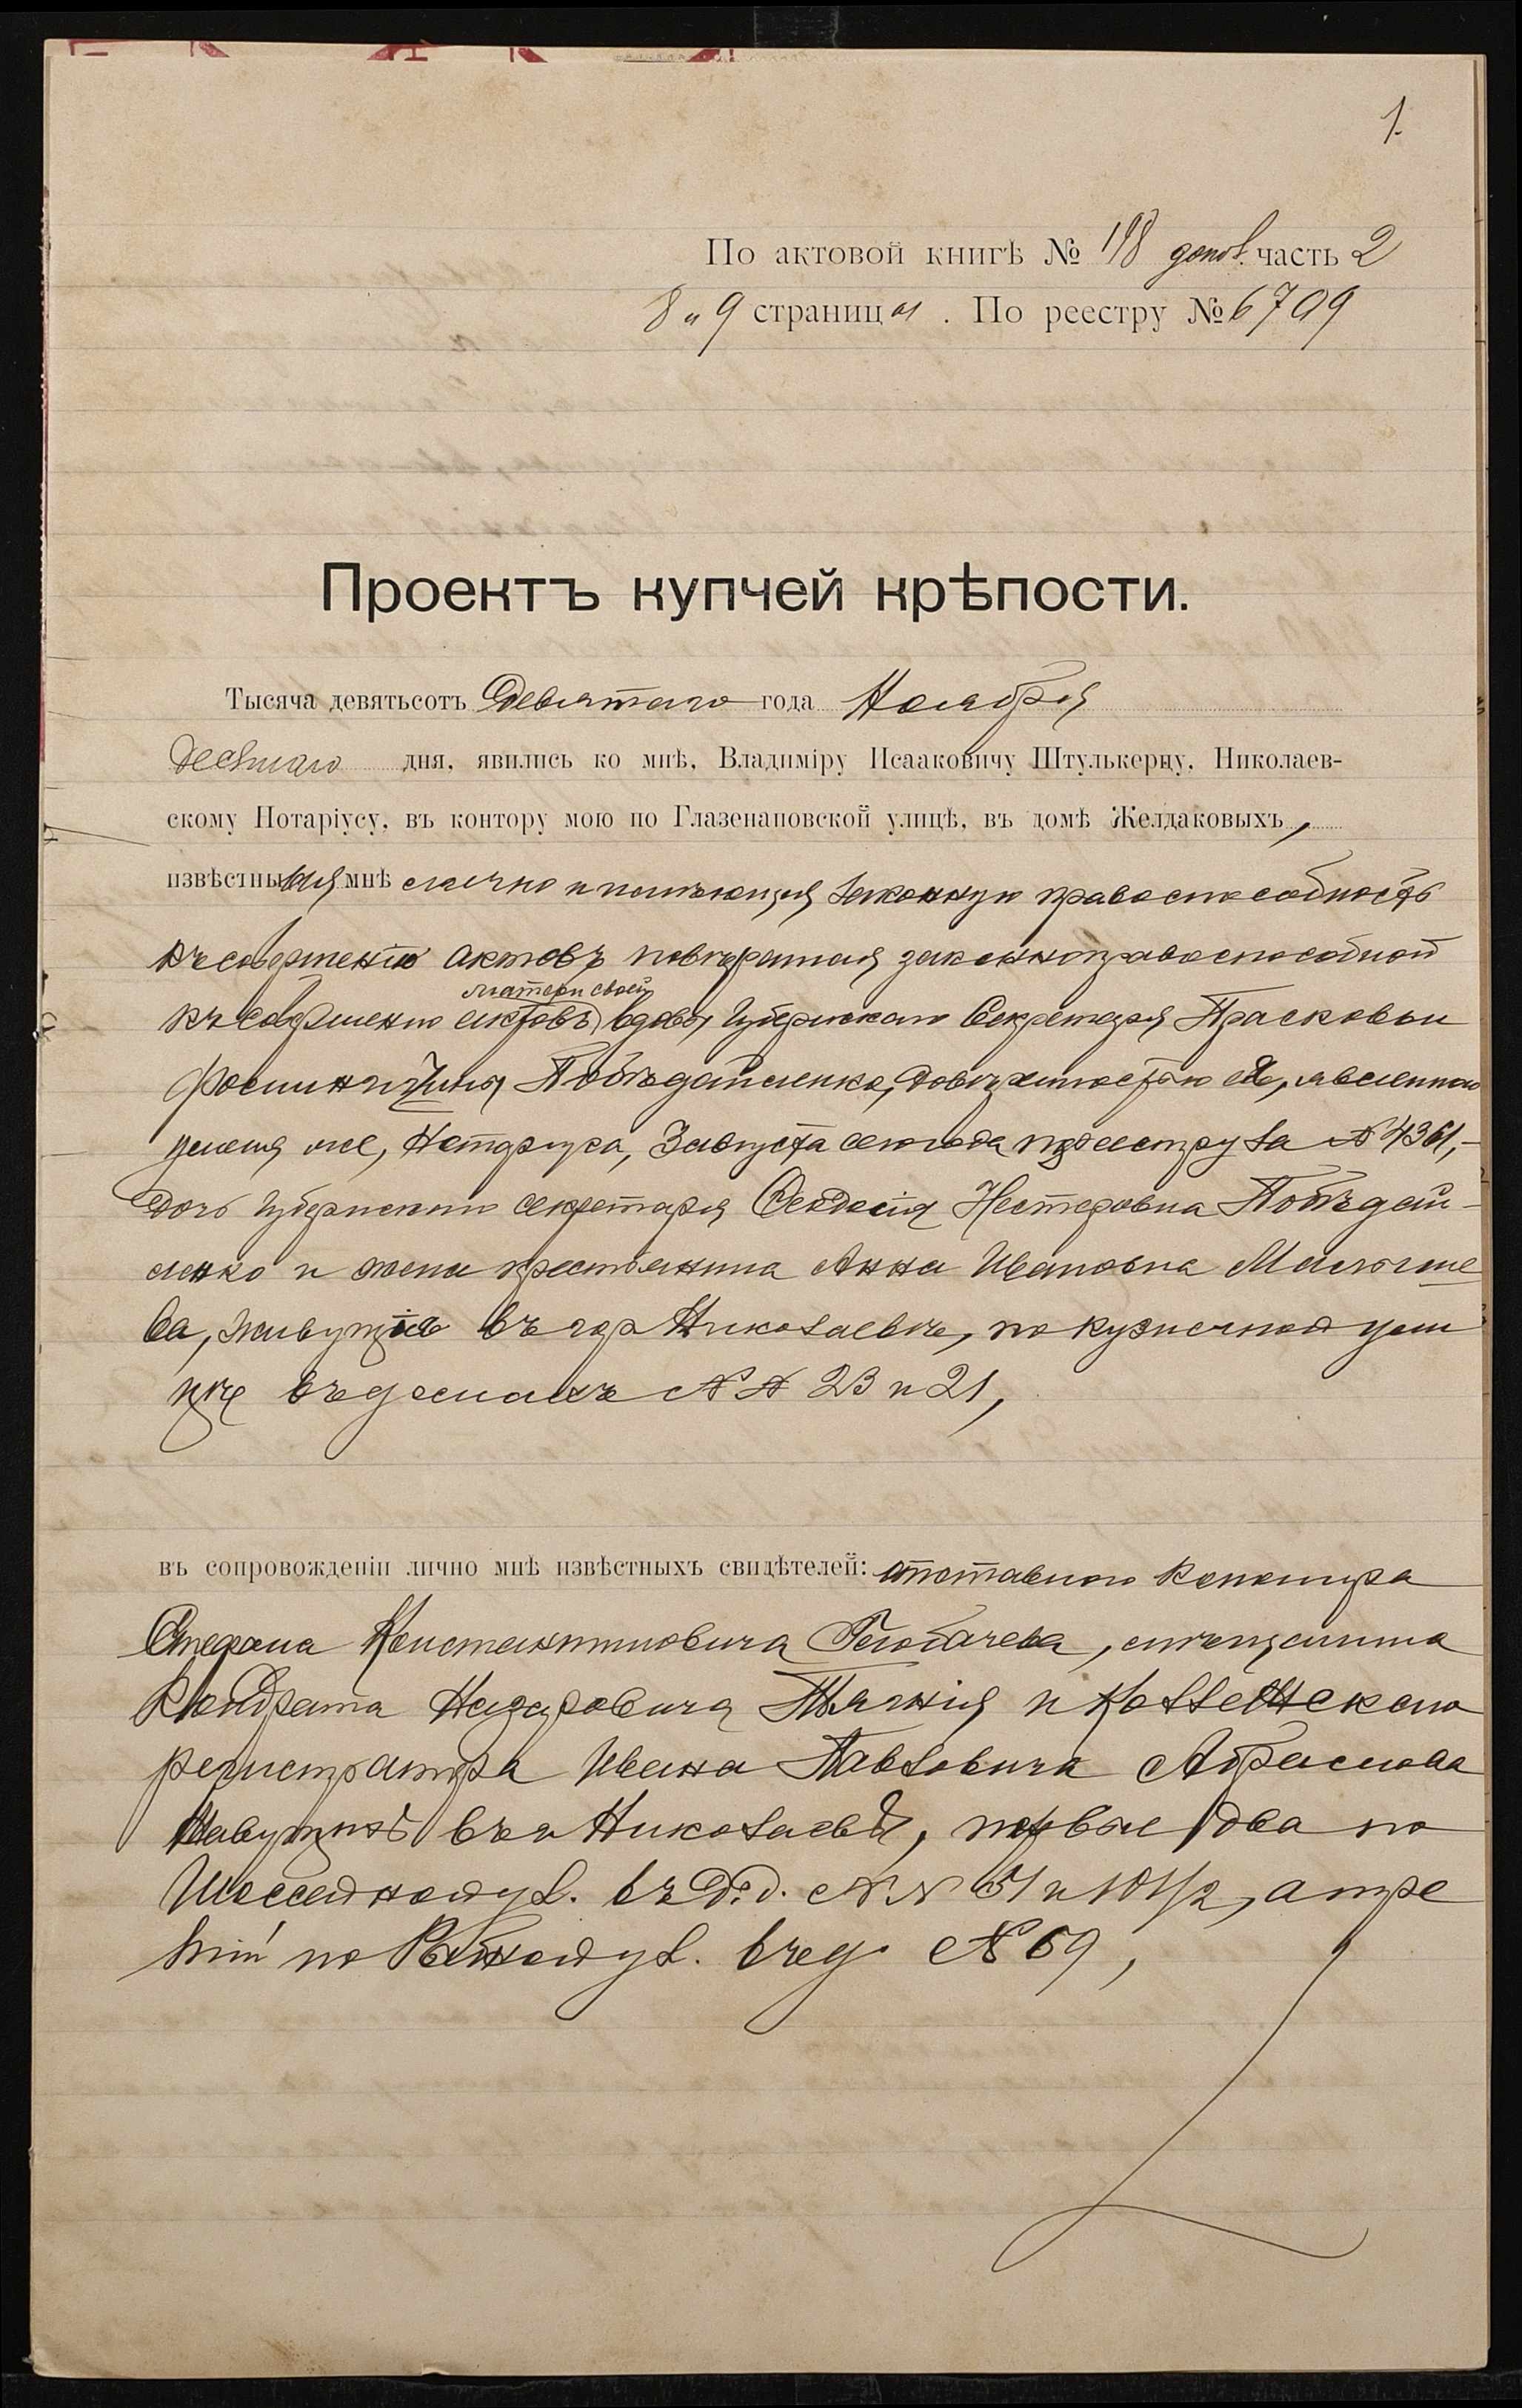 1.
По актовой книгѣ № 198 допол. часть 2
8 и 9 страницы. По реестру № 6709
Проектъ купчей крѣпости.
Тысяча девятьсотъ Девятаго года Ноября
Десятаго дня, явились ко мнѣ, Владиміру Исааковичу Штулькерцу, Николаев-
скому Нотаріусу, въ контору мою по Глазенаповской улицѣ, въ домѣ Желдаковыхъ,
извѣстныя мнѣ лично и имѣющія законную правоспособность
къ совершенію актовъ повѣренная законноправоспособной
матери своей
къ совершенію актовъ вдовы Губернскаго Секретаря Прасковьи
Побѣдайленко, довѣренностью ея, явленною
у меня же, Нотаріуса, 3 августа сего года по реестру за № 4361,-
дочь Губернскаго секретаря Феодосія Нестеровна Побѣдай-
ленко и жена крестьянина Анна Ивановна Малюгае
ва, живущія въ гор Николаевѣ, по Кузнечной ули
цѣ въ домахъ №№ 23 и 21,
въ сопровожденіи лично мнѣ извѣстныхъ свидѣтелей: отставного
Стефана Константиновича мѣщанина
Кондрата Назаровича Тягнія и Коллежскаго
регистратора Ивана Павловича Абрамова
живущихъ въ г Николаевѣ, первые два по
Шоссейной ул. въ д.д. №№ 51 и 101/2, а тре
тій по Рыбной ул. въ д. № 69,